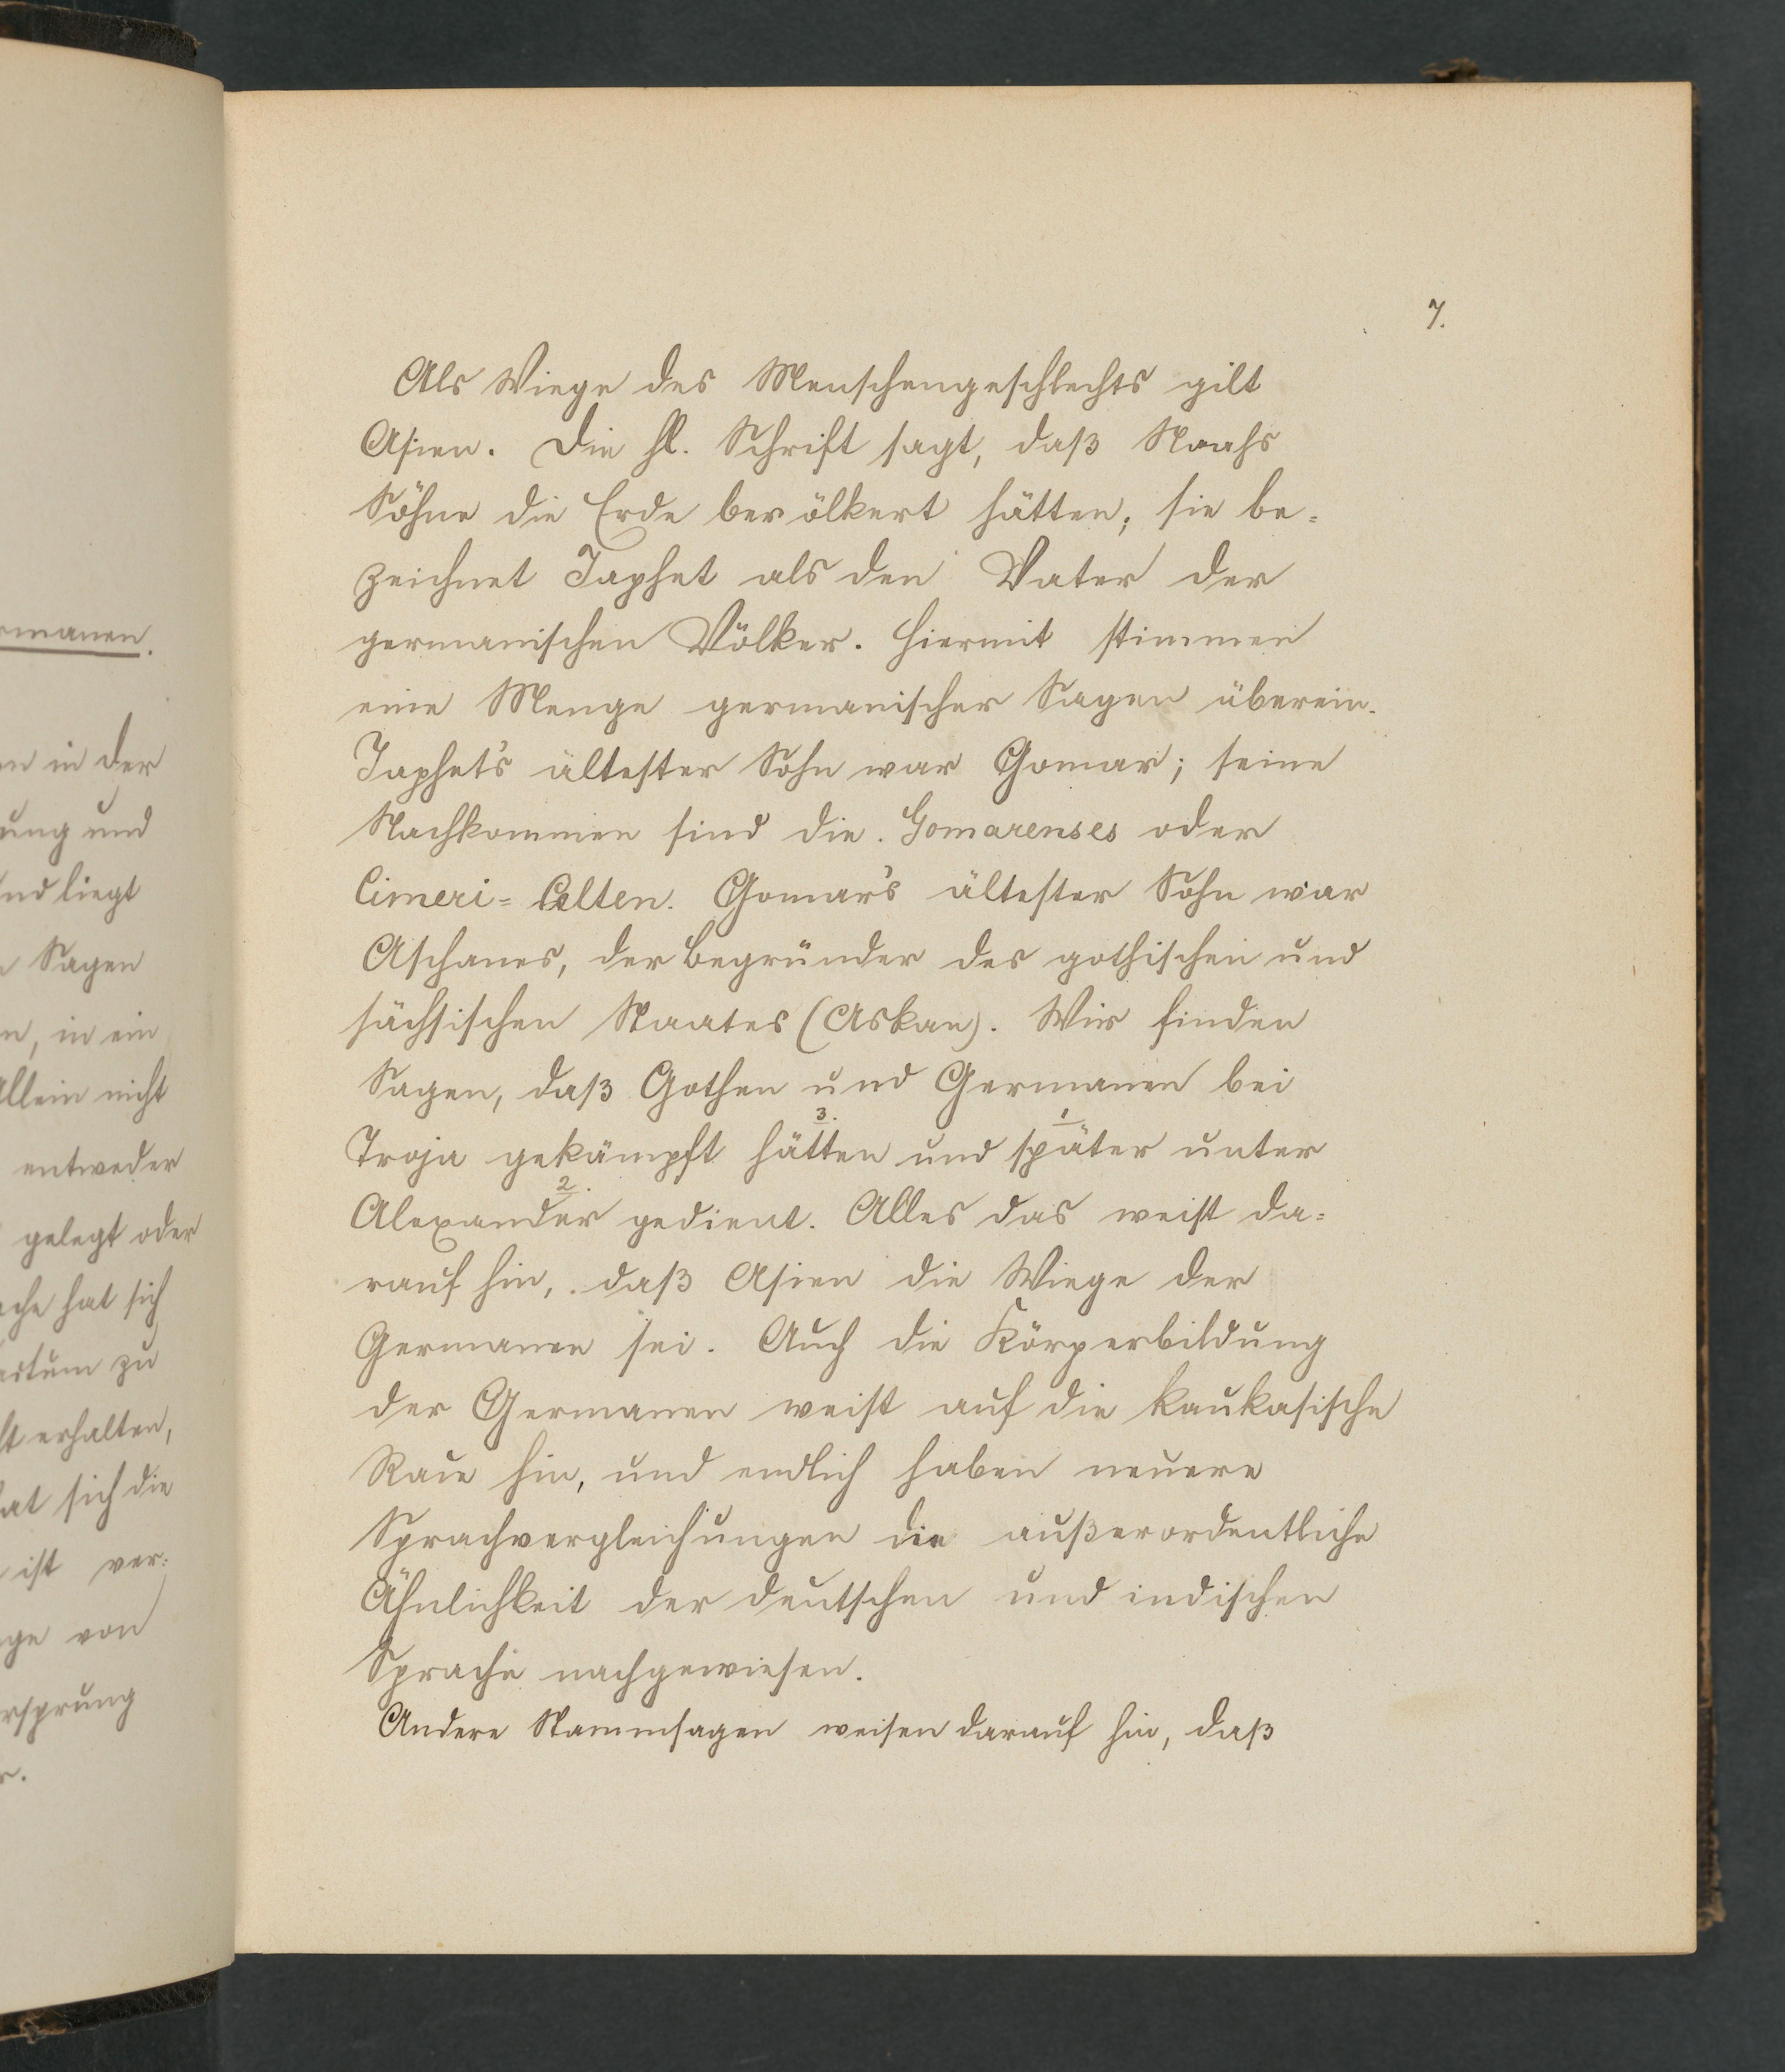 7.
Als Wiege des Menschengeschlechts gilt
Asien. Die hl. Schrift sagt, daß Noahs
Söhne die Erde bevölkert hätten; sie be=
zeichnet Japhet als den Vater der
germanischen Völker. Hiermit stimmen
eine Menge germanischer Sagen überein.
Japhet's ältester Sohn war Gomar; seine
Nachkommen sind die Gomarenses oder
Cimeri= Celten. Gomar's ältester Sohn war
Aschanes, der Begründer des gothischen und
sächsischen Staates (Askan). Wir finden
Sagen, daß Gothen und Germanen bei
3. 1
Troja gekämpft hätten und später unter
2.
Alexander gedient. Alles das weist da=
rauf hin, daß Asien die Wiege der
Germanen sei. Auch die Körperbildung
der Germanen weist auf die kaukasische
hin, und endlich haben neuere
Sprachvergleichungen die außerordentliche
Ähnlichkeit der deutschen und indischen
Sprache nachgewiesen.
Andere Stammsagen weisen darauf hin, daß
rmanen.
n in der
ung und
nd liegt
Sagen
n, in ein
Allein nicht
entweder
gelegt oder
ache hat sich
zu
erhalten,
at sich die
ist ver=
ge von
rsprung
r.